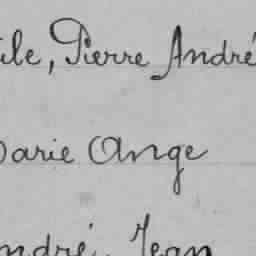 ile, Pierre André
Marie Ange
André, Jean